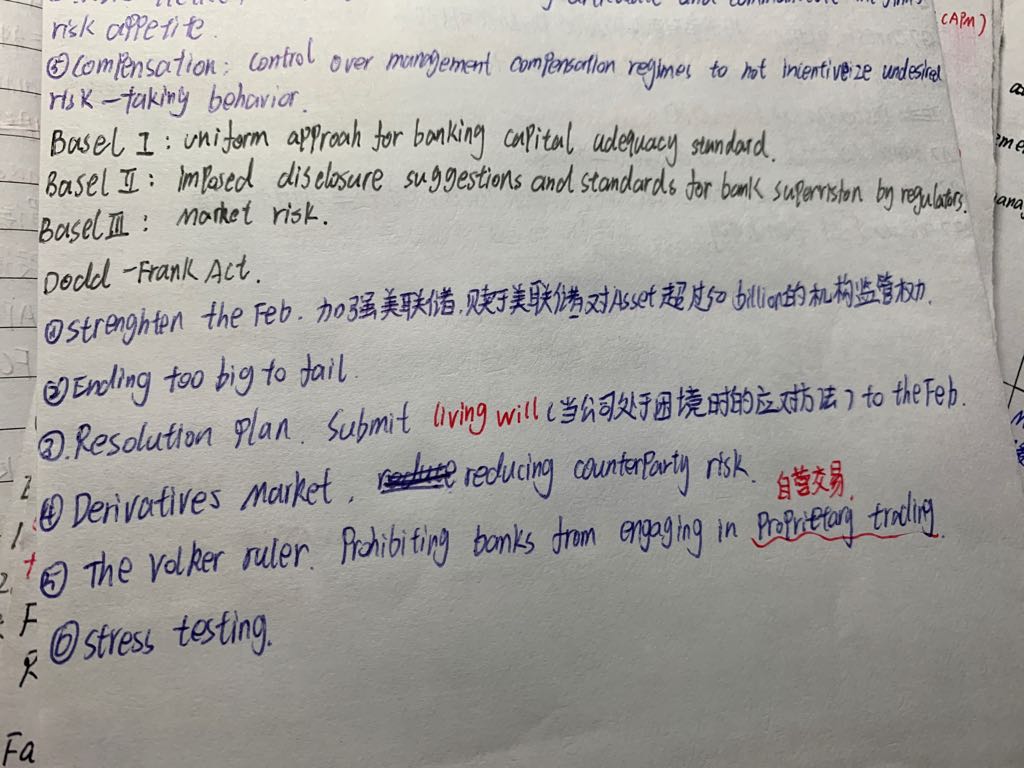 risk appetite.
(APM)
⑤ Compensation: control over management compensation regimes to not incentiveize undesired
risk-taking behavior.
Basel I: uniform approah for banking capital adequacy standard.
Basel II: Imposed disclosure suggestions and standards for bank supervision by regulators.
Basel III: market risk.
Dodd-Frank Act.
① strenghten the Feb. 加强美联储.赎于美联储对Asset超过50 billion的机构监管权力.
② Ending too big to fail.
③ Resolution plan. Submit living will (当公司处于困境时的应对方法) to the Feb.
④ Derivatives market. reducing counterparty risk.
自营交易.
⑤ The volker ruler. Prohibiting banks from engaging in proprietary trading.
⑥ stress testing.
Fa